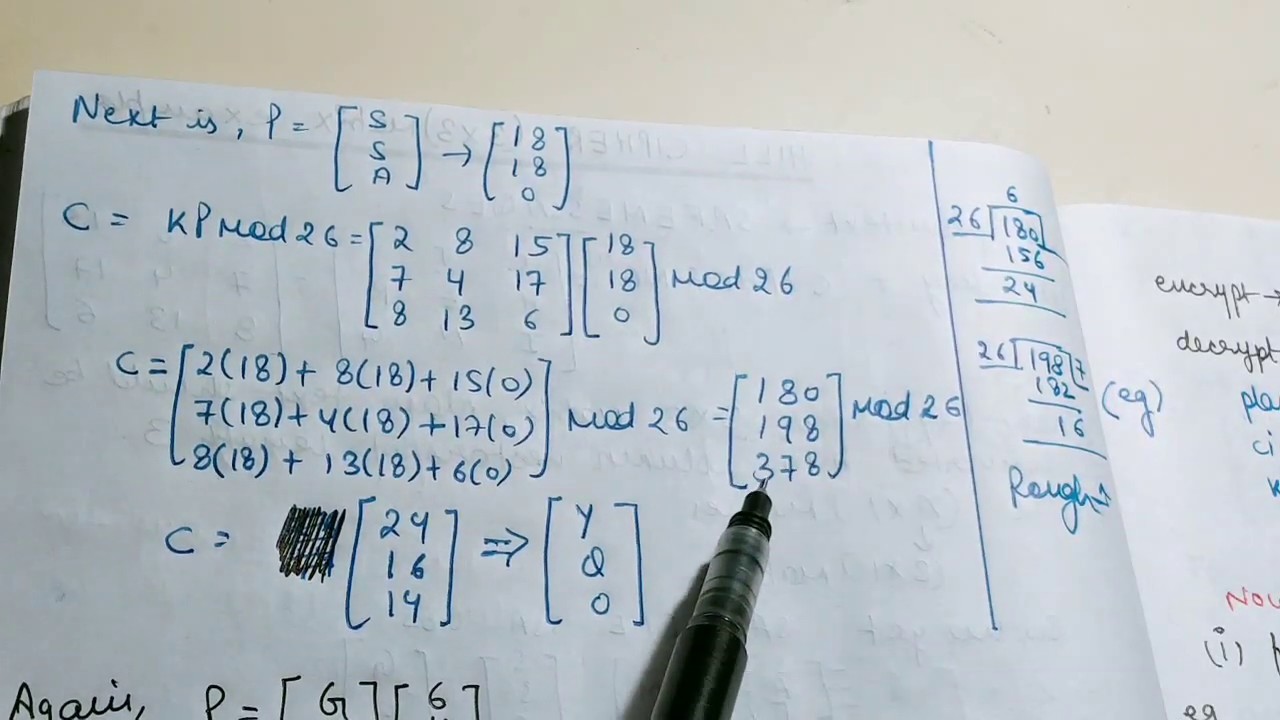 Next is, P = [S S A] → [18 18 0]
C = KP Mod 26 = [2 8 15 7 4 17 8 13 6] [18 18 0] Mod 26
C = [2(18) + 8(18) + 15(0)
7(18) + 4(18) + 17(0)
8(18) + 13(18) + 6(0)] Mod 26 = [180 198 378] Mod 26
C = [24 16 14] ⇒ [Y Q O]
Again, P = [G] [6]
6
26 180
156
24
26 198 7
182
16
Rough↑
encrypt →
decrypt
(eg)
pla
ci
K
NOW
(i)
eg